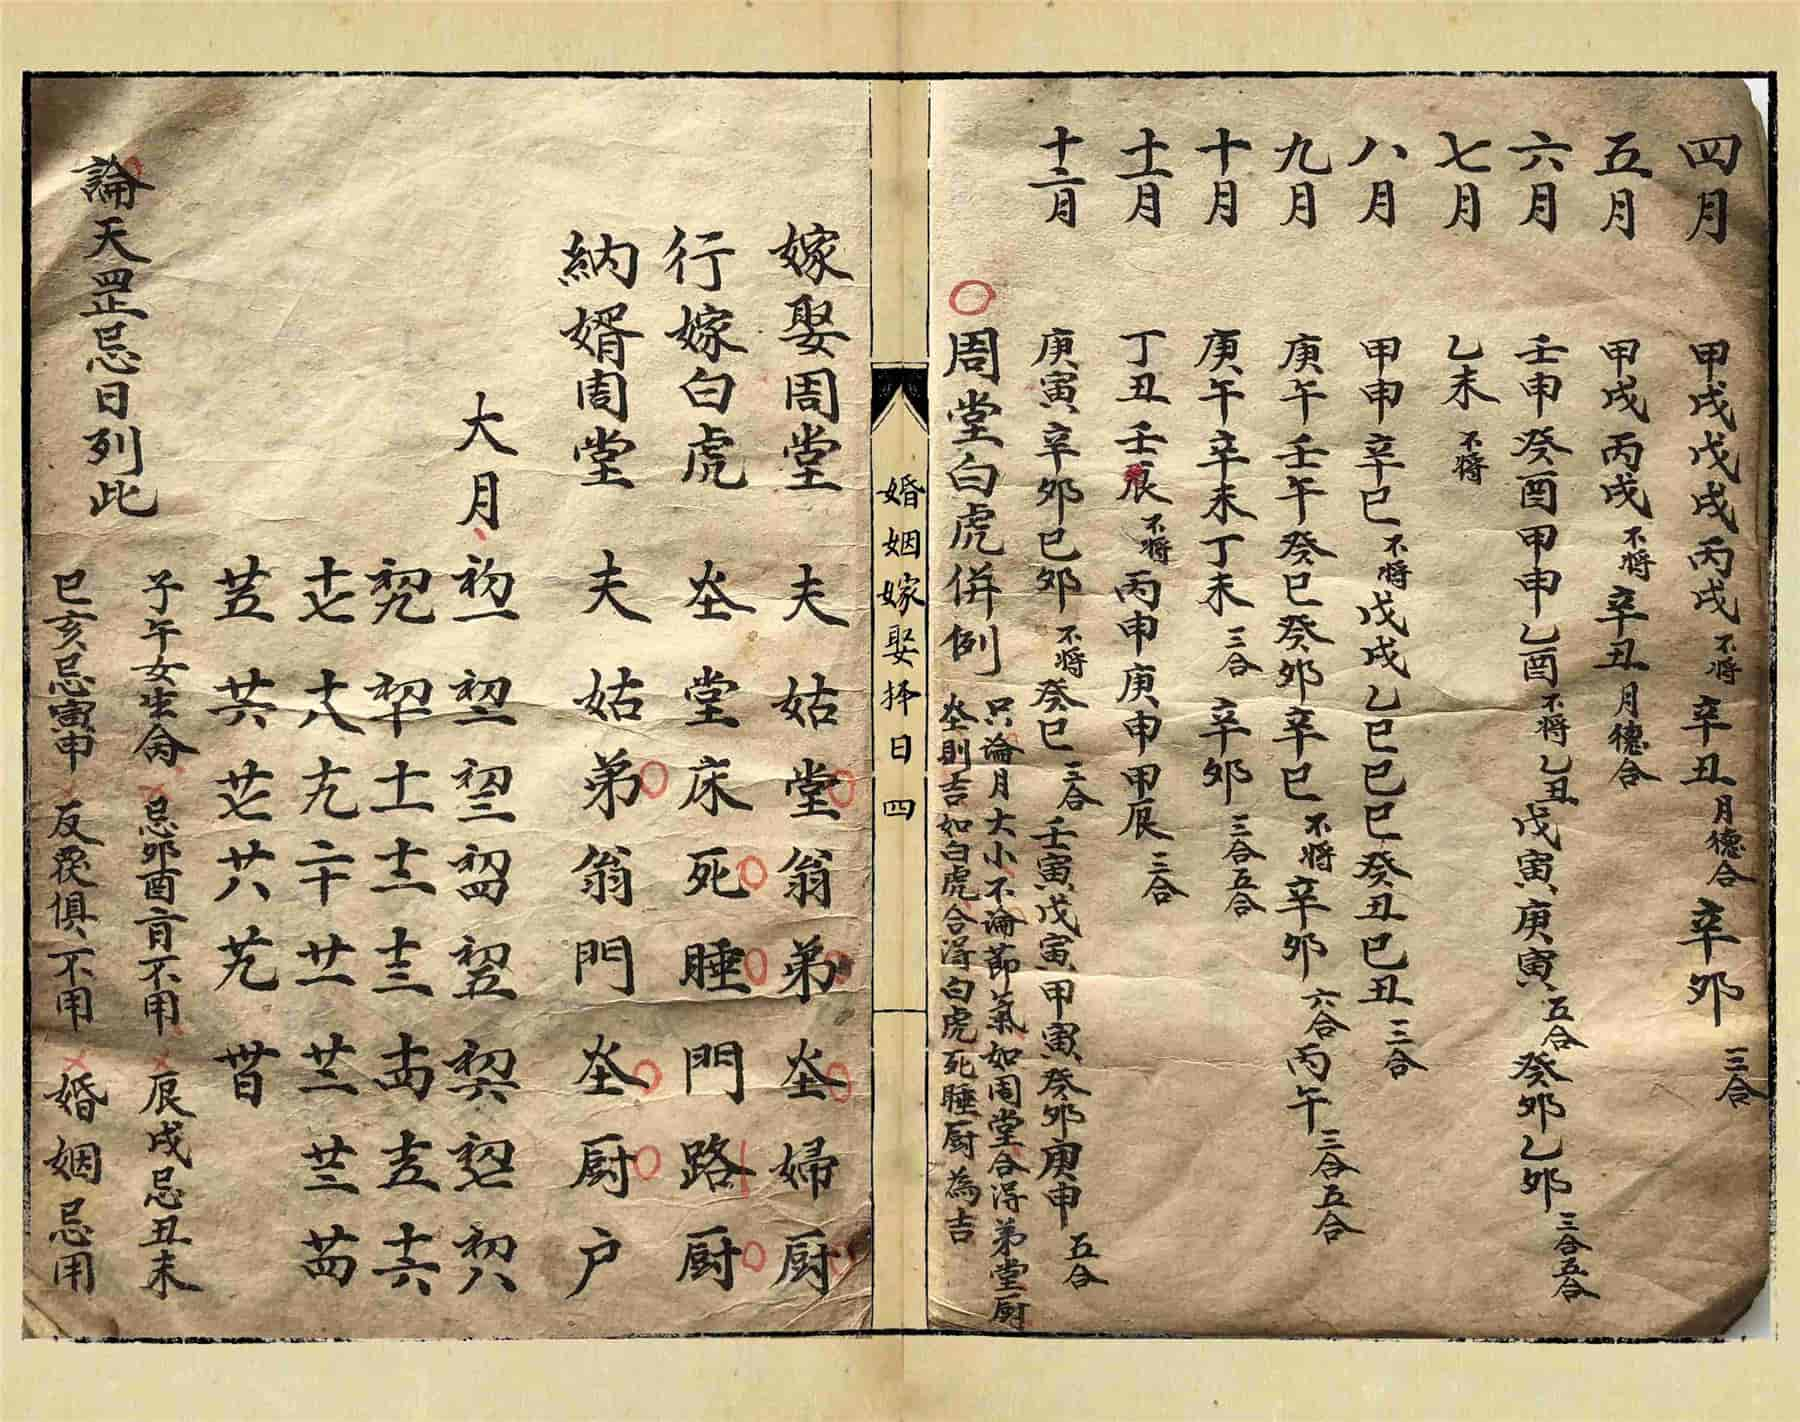 四月　甲戌戊戌丙戌不将辛丑月德合辛卯三合
五月　甲戌丙戌不将辛丑月德合
六月　壬申癸酉甲申乙酉不将乙丑戊寅庚寅五合癸卯乙卯三合五合
七月　乙未不将
八月　甲申辛巳不将戊戌乙巳己巳癸丑己丑三合
九月　庚午壬午癸巳癸卯辛巳不将辛卯六合丙午三合五合
十月　庚午辛未丁未三合辛卯三合五合
十一月　丁丑壬辰不将丙申庚申甲辰三合
十二月　庚寅辛卯己卯不将癸巳三合壬寅戊寅甲寅癸卯庚申五合
周堂白虎併例
只論月大小不論節氣如周堂合得弟堂厨
灶則吉如白虎合得白虎死睡厨為吉
婚姻嫁娶择日四
嫁娶周堂　夫姑堂翁弟灶婦厨
行嫁白虎　灶堂床死睡門路厨
納婿周堂　夫姑弟翁門灶厨户
大月　初一初二初三初四初五初六初七初八
初九初十十一十二十三十四十五十六
十七十八十九二十廿一廿二廿三廿四
廿五廿六廿七廿八廿九卅日
論天罡忌日列此
子午女生命　忌卯酉盲不用　辰戌忌丑未
巳亥忌寅申　反處俱不用　婚姻忌用